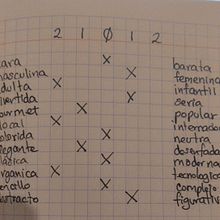 2 1 0 1 2
cara X barata
masculina X femenina
adulta X infantil
divertida X seria
gourmet X popular
local X
colorida X neutra
elegante X
clásica X moderna
orgánica X tecnológica
sencillo X complejo
abstracto X figurativo